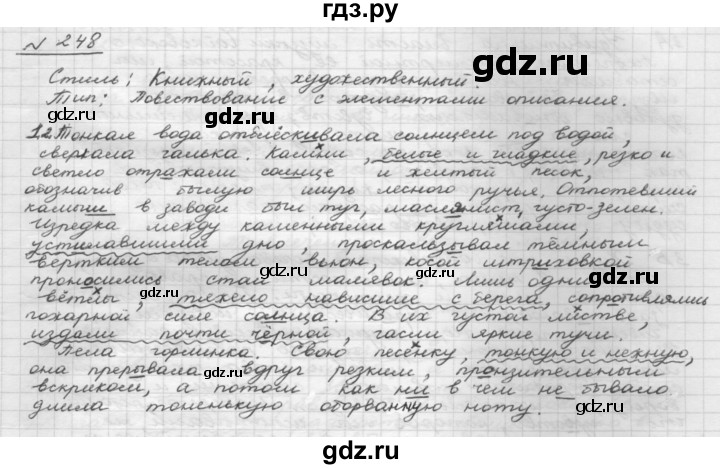 гдз.ру
№ 248
Стиль: Книжный, художественный.
Тип: Повествование с элементами описания.
1.2. Тонкая вода отблёскивала солнцем под водой,
сверкала галька. Камни, белые и гладкие, резко и
светло отражали солнце и желтый песок,
обозначив былую ширь лесного ручья. Отпотевший
камыш в заводи был туг, маслянист, густо-зелен.
Изредка между каменными кругляшами,
устилавшими дно, проскальзывал тёмным
вёртким телом вьюн, косой штриховкой
проносились стаи малявок. Лишь одни
вётлы, тяжело нависшие с берега, сопротивлялись
пожарной силе солнца. В их густой листве,
издали почти чёрной, гасли яркие тучи.
Пела горлинка. Свою песенку, тонкую и нежную,
она прерывала вдруг резким, пронзительным
вскриком, а потом как ни в чем не бывало
длила тоненькую оборванную ноту.
gdz.ru
gdz.ru
gdz.ru
gdz.ru
gdz.ru
gdz.ru
gdz.ru
gdz.ru